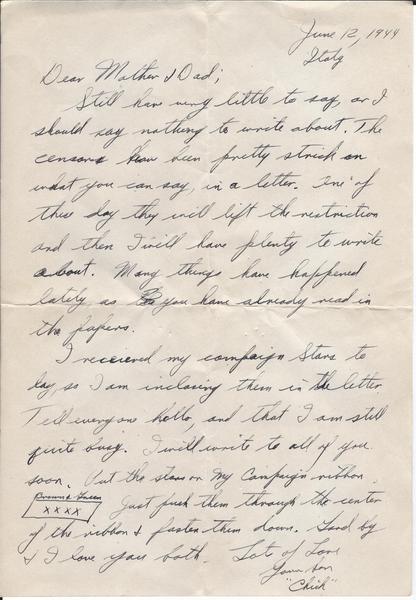 June 12, 1944
Italy
Dear Mother & Dad;
Still have very little to say, or I
should say nothing to write about. The
censors have been pretty strick on
what you can say, in a letter. One of
these day they will lift the restriction
and then I will have plenty to write
about. Many things have happened
lately as you have already read in
the papers.
I recieved my campaign Stars to
day, so I am inclosing them in the letter
Tell everyone hello, and that I am still
quite busy. I will write to all of you
soon. Put the stars on My Campaign ribbon.
Brown & Green
xxxx
Just push them through the center
of the ribbon & fasten them down. Good by
& I love you both. Lots of Love
Your Son
"Chick"